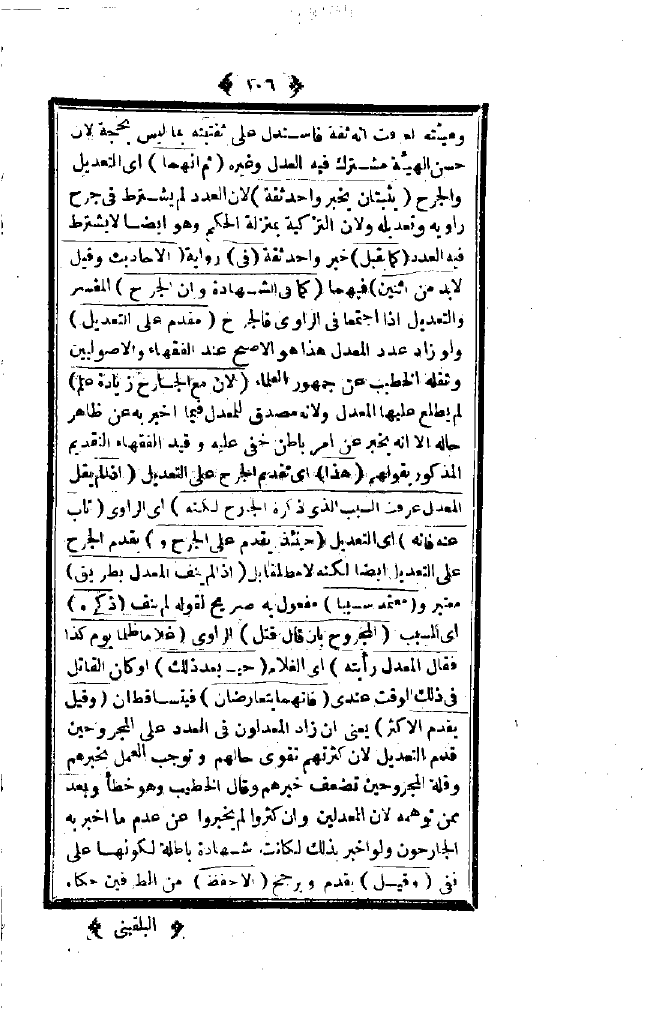 ﴿ ٢٠٦ ﴾
وهيئته لعرفت انه ثقة فاستدل على ثقتيته بما ليس بحجة لان
حسن الهيئة مشترك فيه العدل وغيره ( ثم انهما ) اى التعديل
والجرح ( يثبتان بخبر واحد ثقة ) لان العدد لم يشترط فى جرح
راويه وتعديله ولان التزكية بمنزلة الحكم وهو ايضا لا يشترط
فيه العدد ( كما يقبل ) خبر واحد ثقة ( فى ) رواية ( الاحاديث وقيل
لابد من اثنين ) فيهما ( كما فى الشهادة وان الجرح ) المفسر
والتعديل اذا اجتمعا فى الراوى فالجرح ( مقدم على التعديل )
ولو زاد عدد المعدل هذا هو الاصح عند الفقهاء والاصوليين
ونقله الخطيب عن جمهور العلماء ( لان مع الجارح زيادة علم )
لم يطلع عليها المعدل ولانه مصدق للمعدل فيما اخبر به عن ظاهر
حاله الا انه يخبر عن امر باطن خفى عليه وقيد الفقهاء التقديم
المذكور بقولهم ( هذا ) اى تقديم الجرح على التعديل ( اذا لم يقل
المعدل عرفت السبب الذى ذكره الجرح لكنه ) اى الراوى ( تاب
عنه فانه ) اى التعديل ( حينئذ يقدم على الجرح و ) يقدم الجرح
على التعديل ايضا لكنه لا مطلقا بل ( اذا لم ينف المعدل بطريق )
معتبر و ( معتمد سببا ) مفعول به صريح لقوله لم ينف ( ذكره )
اى السبب ( المجروح بان قال قتل ) الراوى ( غلاما ظلما يوم كذا
فقال المعدل رأيته ) اى الغلام ( حيا بعد ذلك ) او كان القاتل
فى ذلك الوقت عندى ( فانهما يتعارضان ) فيتساقطان ( وقيل
يقدم الاكثر ) يعنى ان زاد المعدلون فى العدد على المجروحين
قدم التعديل لان كثرتهم تقوى حالهم وتوجب العمل بخبرهم
وقلة المجروحين تضعف خبرهم وقال الخطيب وهو خطأ وبعد
ممن توهمه لان المعدلين وان كثروا لم يخبروا عن عدم ما اخبر به
الجارحون ولو اخبر بذلك لكانت شهادة باطلة لكونها على
نفى ( وقيل ) يقدم ويرجح ( الاحفظ ) من الطرفين حكاه
﴿ البلقينى ﴾